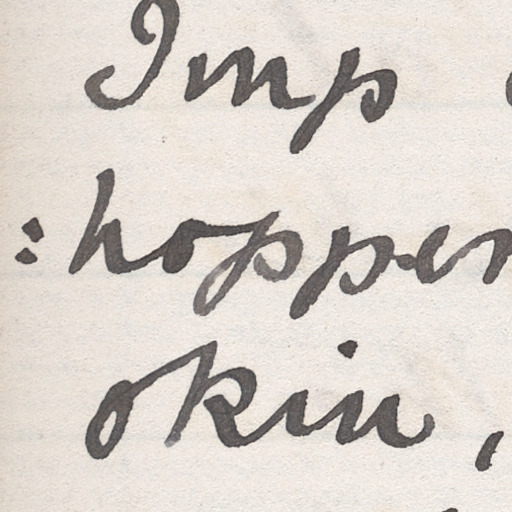 Imp
:hopper
skin,